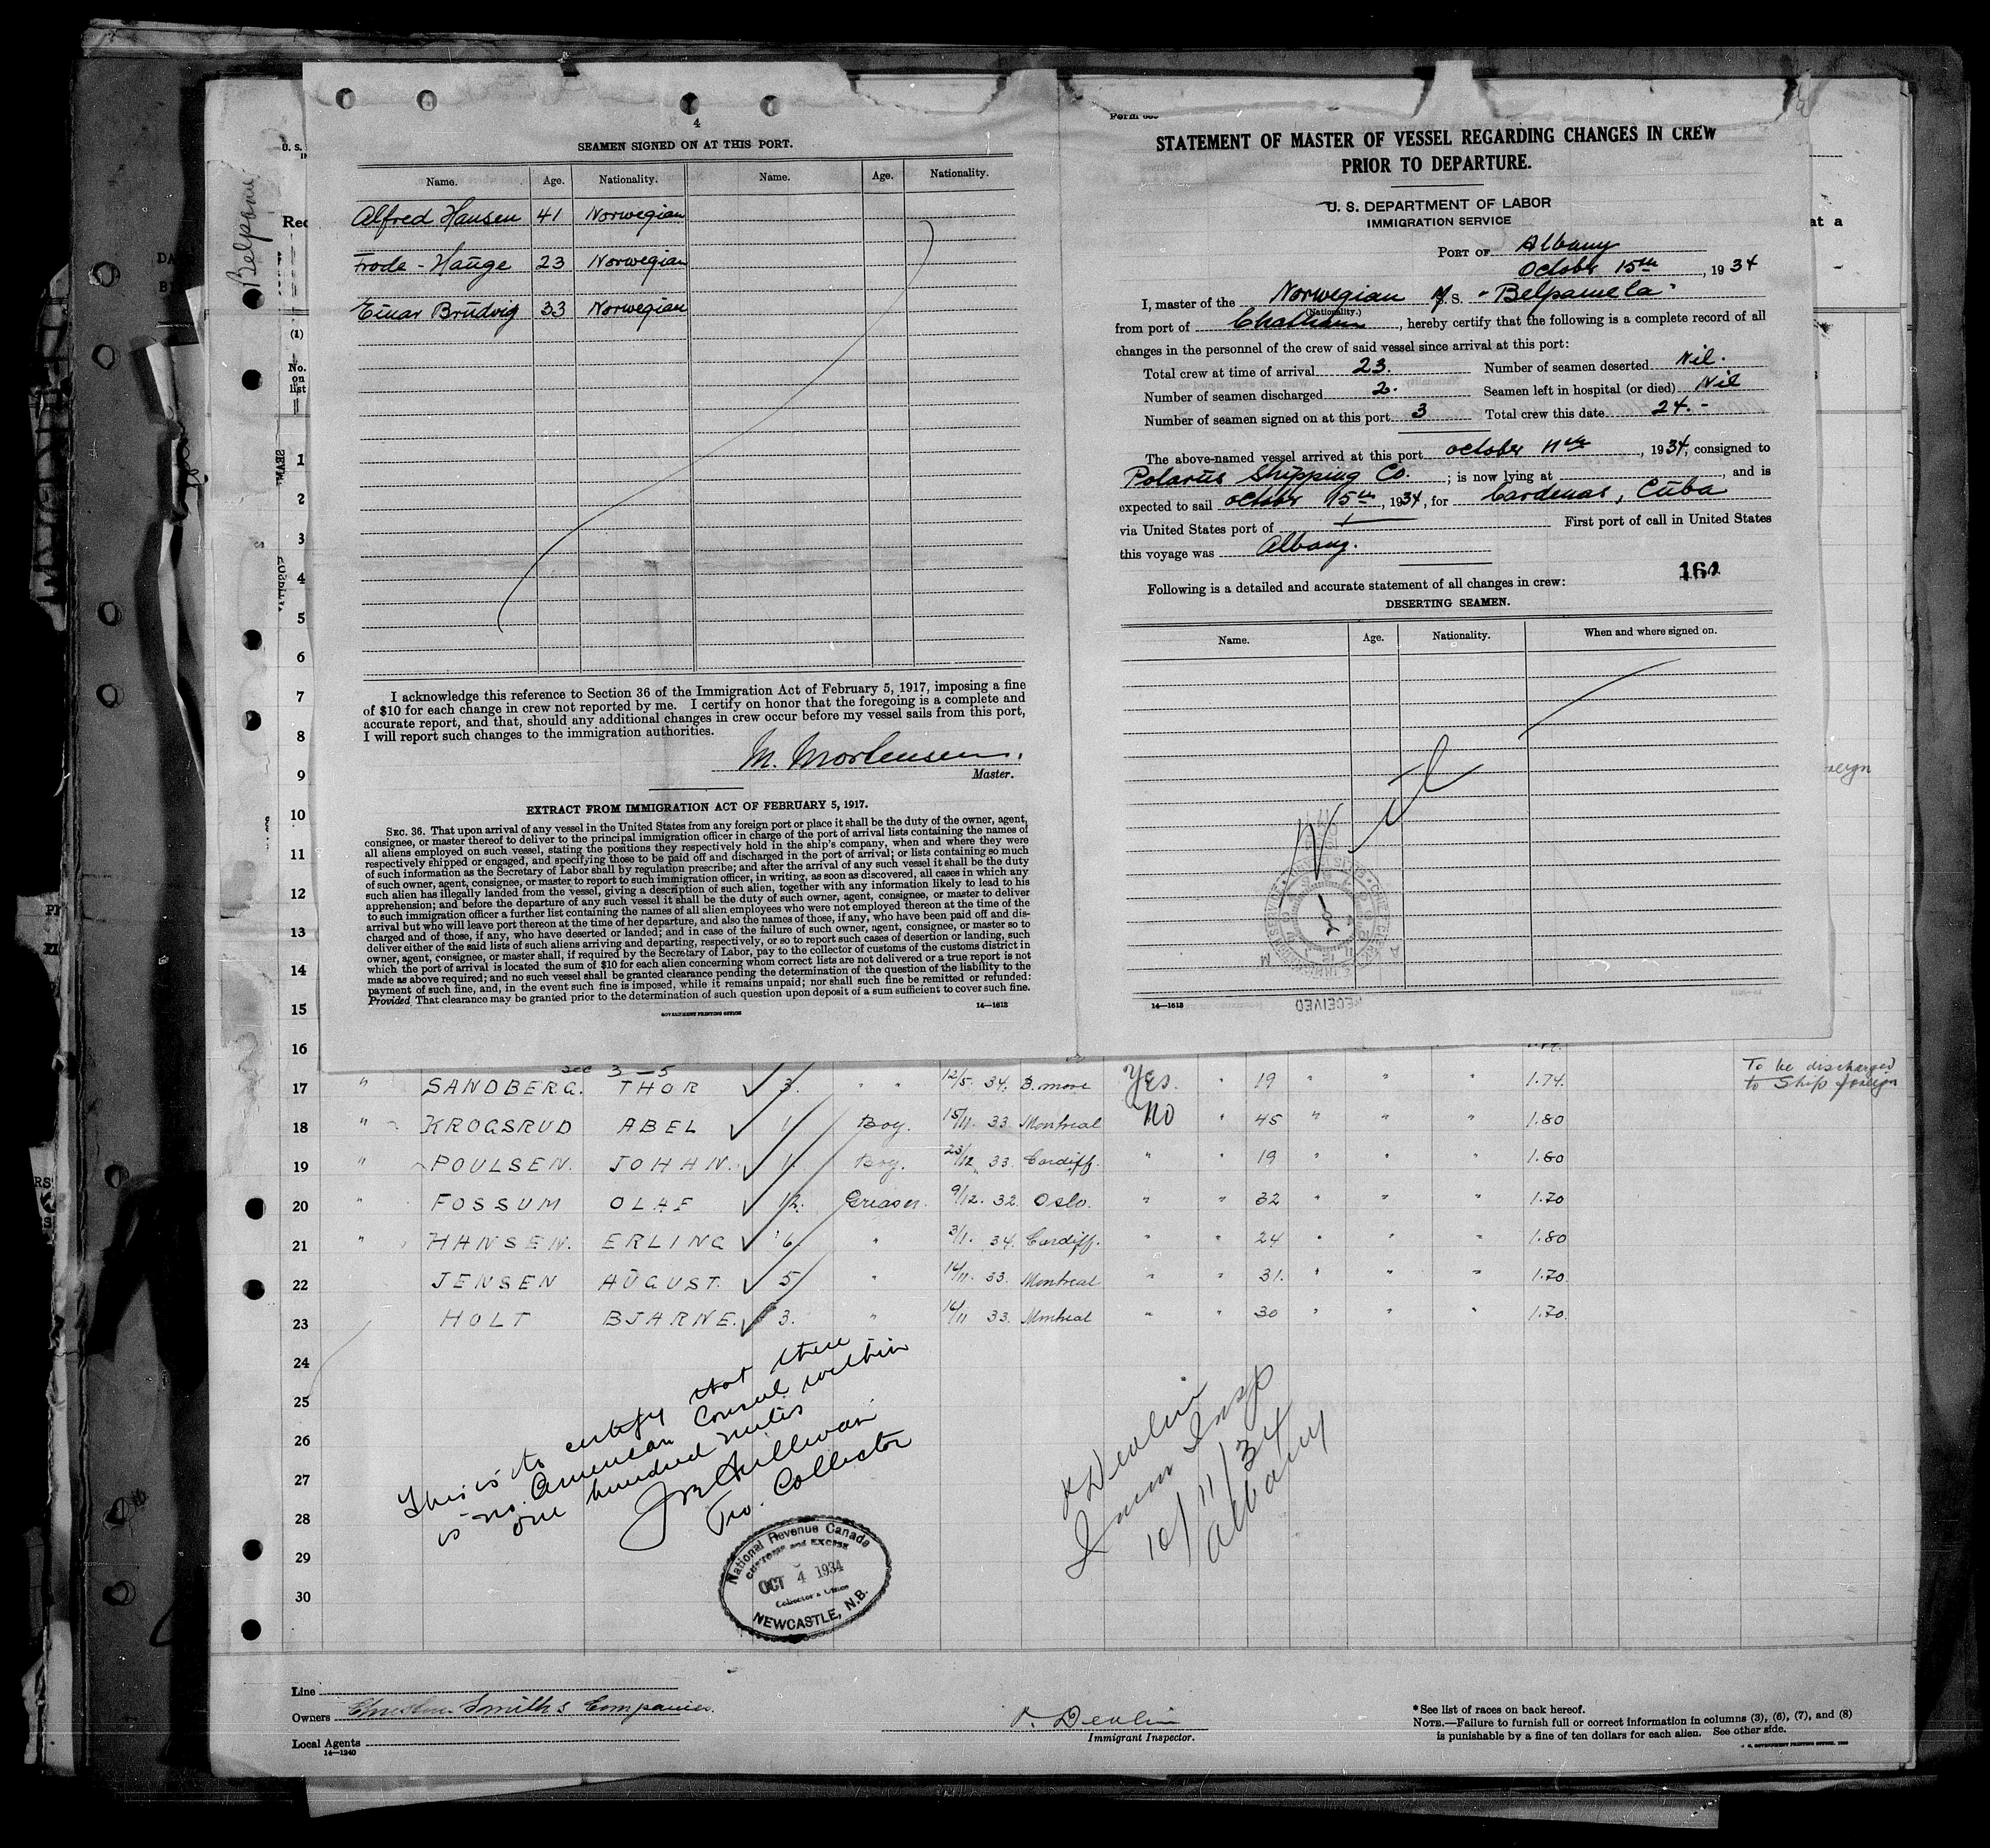 4
SEAMEN SIGNED ON AT THIS PORT.
Name. Age. Nationality. Name. Age. Nationality.
Alfred Hansen 41 Norwegian
Frode - Haŭge 23 Norwegian
Einar Brŭdvig 33 Norwegian
I acknowledge this reference to Section 36 of the Immigration Act of February 5, 1917, imposing a fine
of $10 for each change in crew not reported by me. I certify on honor that the foregoing is a complete and
accurate report, and that, should any additional changes in crew occur before my vessel sails from this port,
I will report such changes to the immigration authorities.
M. Mortensen.
Master.
EXTRACT FROM IMMIGRATION ACT OF FEBRUARY 5, 1917.
SEC. 36. That upon arrival of any vessel in the United States from any foreign port or place it shall be the duty of the owner, agent,
consignee, or master thereof to deliver to the principal immigration officer in charge of the port of arrival lists containing the names of
all aliens employed on such vessel, stating the positions they respectively hold in the ship's company, when and where they were
respectively shipped or engaged, and specifying those to be paid off and discharged in the port of arrival; or lists containing so much
of such information as the Secretary of Labor shall by regulation prescribe; and after the arrival of any such vessel it shall be the duty
of such owner, agent, consignee, or master to report to such immigration officer, in writing, as soon as discovered, all cases in which any
such alien has illegally landed from the vessel, giving a description of such alien, together with any information likely to lead to his
apprehension; and before the departure of any such vessel it shall be the duty of such owner, agent, consignee, or master to deliver
to such immigration officer a further list containing the names of all alien employees who were not employed thereon at the time of the
arrival but who will leave port thereon at the time of her departure, and also the names of those, if any, who have been paid off and dis-
charged and of those, if any, who have deserted or landed; and in case of the failure of such owner, agent, consignee, or master so to
deliver either of the said lists of such aliens arriving and departing, respectively, or so to report such cases of desertion or landing, such
owner, agent, consignee, or master shall, if required by the Secretary of Labor, pay to the collector of customs of the customs district in
which the port of arrival is located the sum of $10 for each alien concerning whom correct lists are not delivered or a true report is not
made as above required; and no such vessel shall be granted clearance pending the determination of the question of the liability to the
payment of such fine, and, in the event such fine is imposed, while it remains unpaid; nor shall such fine be remitted or refunded:
Provided That clearance may be granted prior to the determination of such question upon deposit of a sum sufficient to cover such fine.
GOVERNMENT PRINTING OFFICE 14—1613
STATEMENT OF MASTER OF VESSEL REGARDING CHANGES IN CREW
PRIOR TO DEPARTURE.
U. S. DEPARTMENT OF LABOR
IMMIGRATION SERVICE
PORT OF Albany
October 15th, 1934
I, master of the Norwegian M. S. "Belpamela"
(Nationality.)
from port of Chatham, hereby certify that the following is a complete record of all
changes in the personnel of the crew of said vessel since arrival at this port:
Total crew at time of arrival 23. Number of seamen deserted Nil.
Number of seamen discharged 2. Seamen left in hospital (or died) Nil
Number of seamen signed on at this port 3 Total crew this date 24. -
The above-named vessel arrived at this port october 11th, 1934, consigned to
Polarŭs Shipping Co. ; is now lying at , and is
expected to sail october 15th, 1934, for Cardenas, Cŭba
via United States port of First port of call in United States
this voyage was Albany.
164
Following is a detailed and accurate statement of all changes in crew:
DESERTING SEAMEN.
Name. Age. Nationality. When and where signed on.
Nil
14—1613
RECEIVED
Belpamela
U. S.
(1)
No.
on
list
1
2
3
4
5
6
7
8
9
10
11
12
13
14
15
16
sec 3-5
17 " SANDBERG. THOR 3. " " 12/5. 34. B.more Yes. " 19 " " " 1.74. To be discharged
to Ship foreign
18 " KROGSRUD ABEL 1 Boy. 15/11. 33 Montreal No " 45 " " " 1.80
19 " POULSEN. JOHAN. 1. Boy. 23/12. 33. Cardiff. " " 19 " " " 1.60
20 " FOSSUM OLAF 12. Greaser. 9/12. 32 Oslo. " " 32 " " " 1.70
21 " HANSEN. ERLING 6. " 3/1. 34. Cardiff. " " 24 " " " 1.80
22 JENSEN AŬGUST. 5 " 14/11. 33. Montreal " " 31. " " " 1.70.
23 HOLT BJARNE. 3. " 14/11 33. Montreal " " 30 " " " 1.70.
24
25
26
27
28
29
30
This is to certify that there
is no American Consul within
one hundred miles
Collector
National Revenue Canada
CUSTOMS and EXCISE
OCT 4 1934
Collector's Office
NEWCASTLE, N.B.
Devlin
Imm Insp
10/11/34
Albany
Line
Owners Christen Smith's Companies.
Local Agents
14—1240
Devlin
Immigrant Inspector.
*See list of races on back hereof.
NOTE.—Failure to furnish full or correct information in columns (3), (6), (7), and (8)
is punishable by a fine of ten dollars for each alien. See other side.